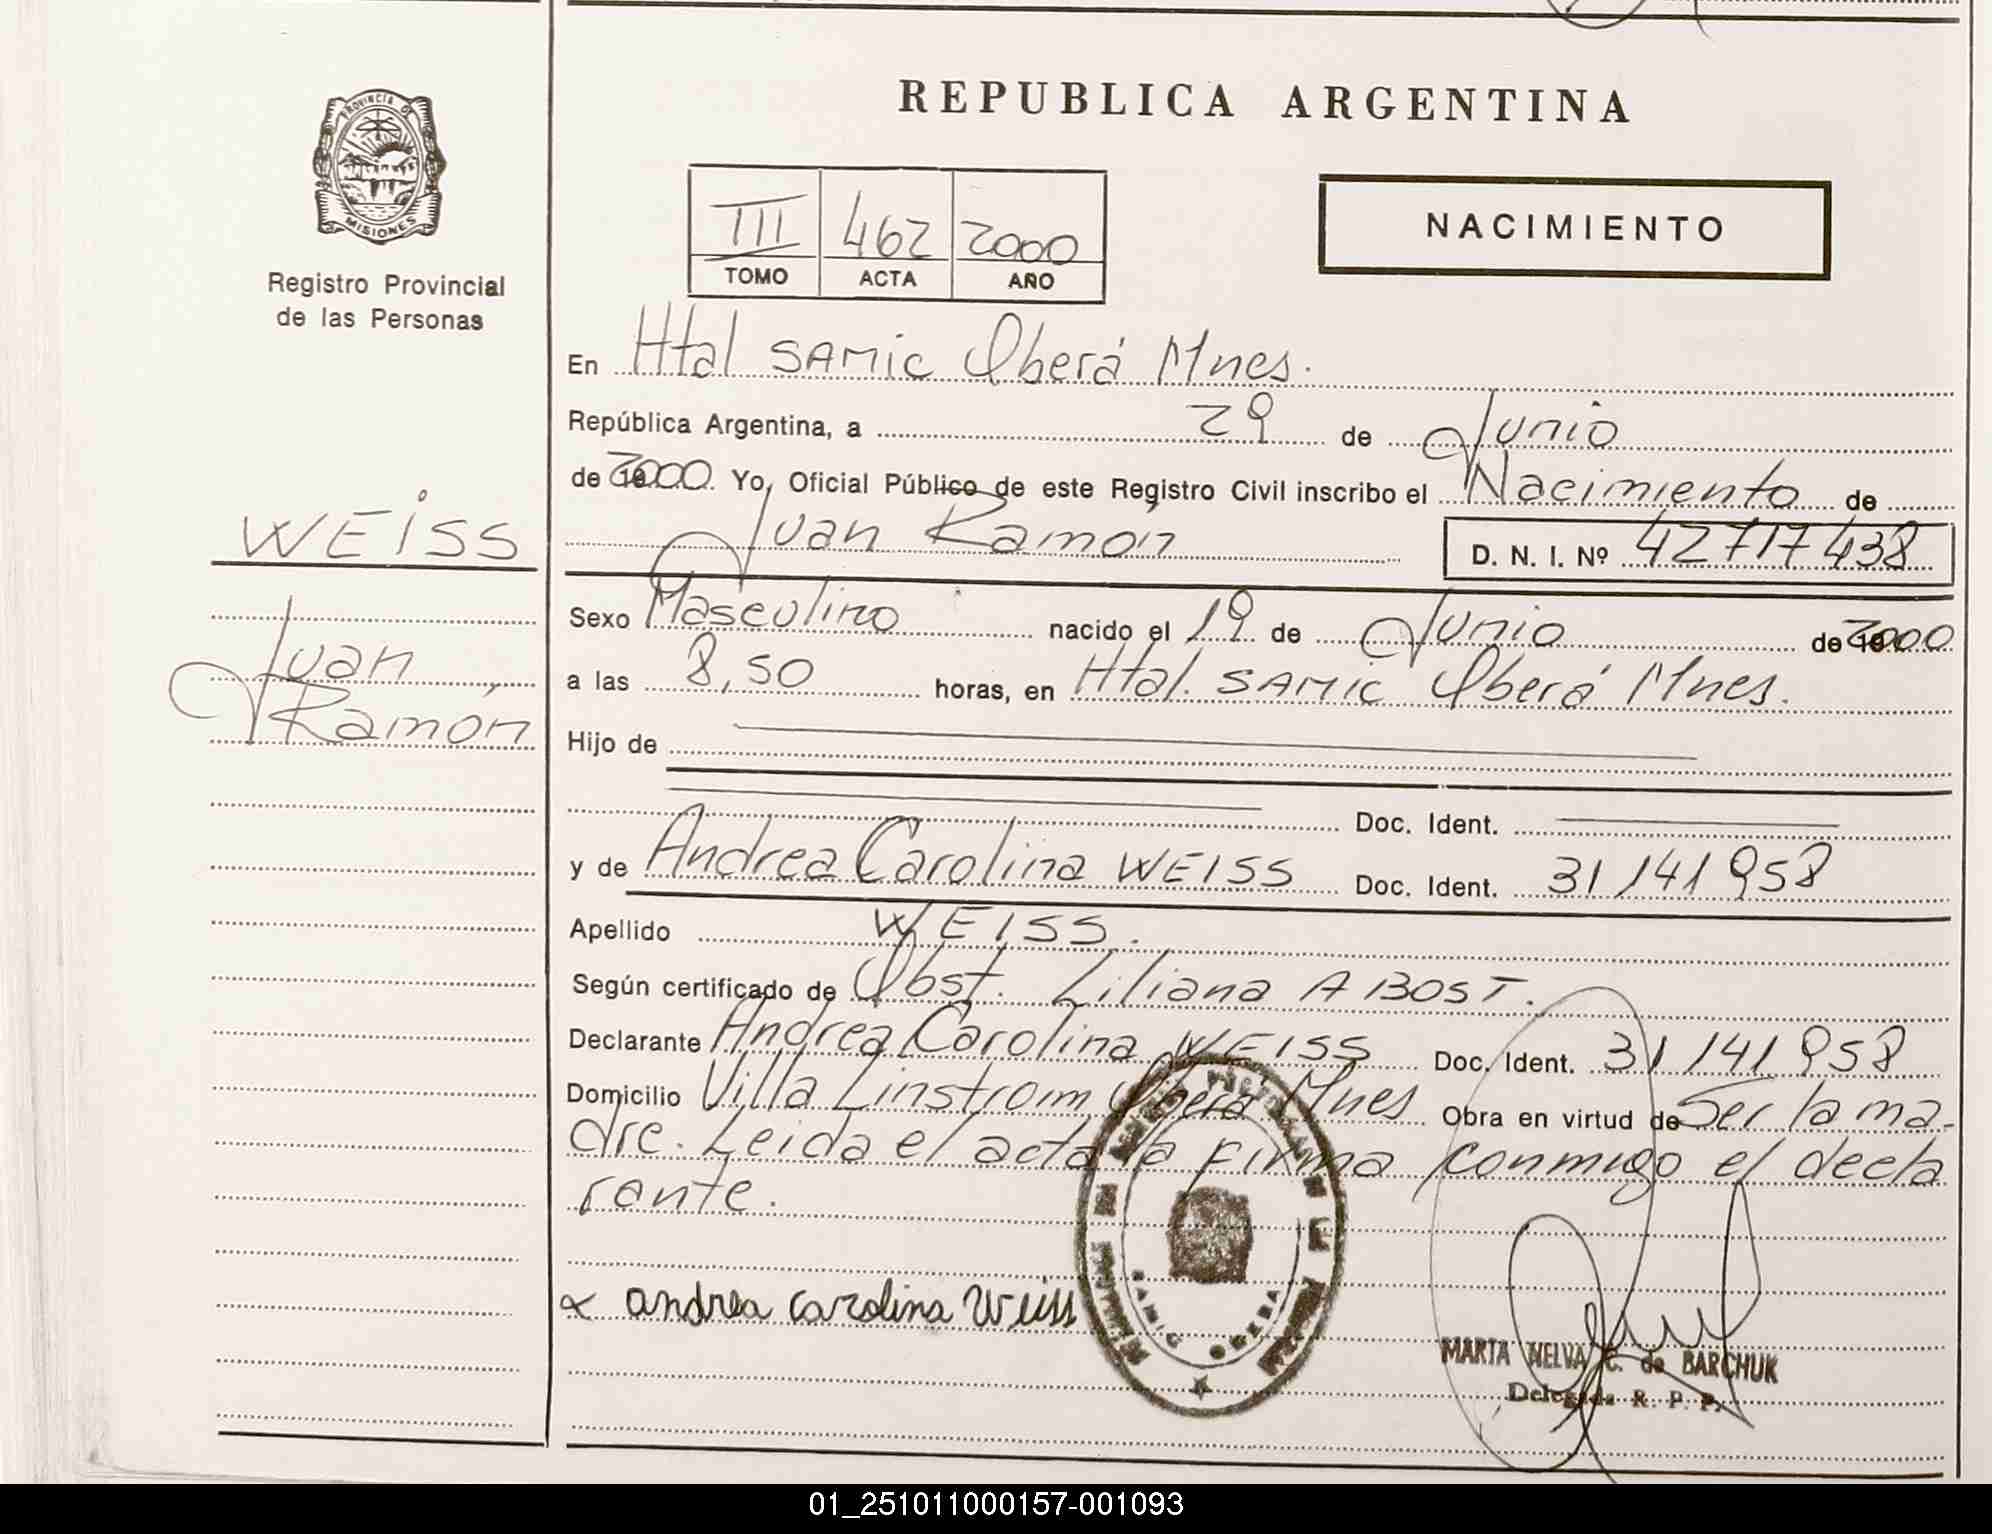 REPUBLICA ARGENTINA
PROVINCIA DE
MISIONES
Registro Provincial
de las Personas
III 462 2000
TOMO ACTA AÑO
NACIMIENTO
En Htal SAMIC Oberá Mnes.
República Argentina, a 29 de Junio
de 2000. Yo, Oficial Público de este Registro Civil inscribo el Nacimiento de
Juan Ramón D. N. I. Nº 42717438
WEiSS
Juan
Ramón
Sexo Masculino nacido el 19 de Junio de 2000
a las 8,50 horas, en Htal. SAMIC Oberá Mnes.
Hijo de
Doc. Ident.
y de Andrea Carolina WEISS Doc. Ident. 31141958
Apellido WEISS.
Según certificado de Obst. Liliana A BOST.
Declarante Andrea Carolina WEISS Doc. Ident. 31141958
Domicilio Villa Linstroim Oberá Mnes Obra en virtud de Ser la ma-
dre. Leida el acta la firma conmigo el decla
rante.
andrea carolina Weiss
SAMIC
OBERA
MARTA NELVA C. de BARCHUK
Delegada R. P. P.
01_251011000157-001093